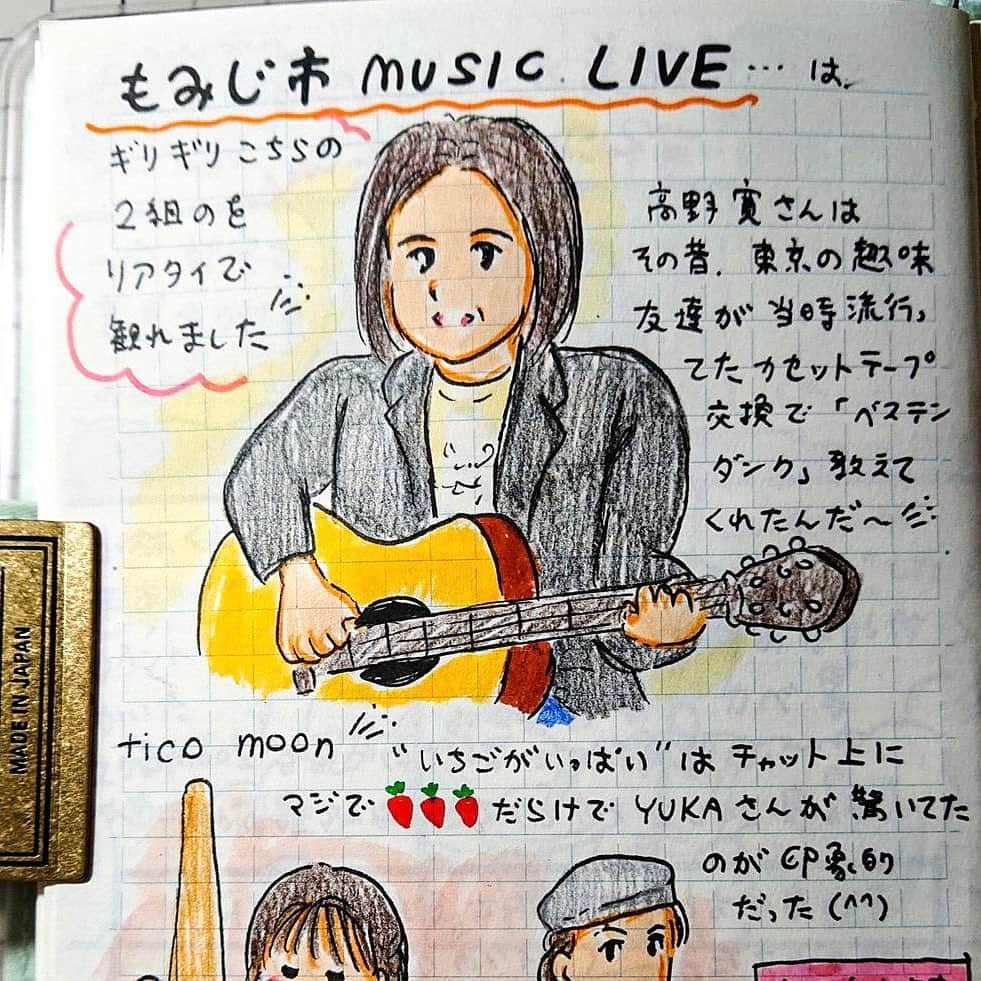 もみじ市 MUSIC LIVE…は、
ギリギリこちらの
2組のを
リアタイで
観れました
高野寛さんは
その昔、東京の趣味
友達が当時流行っ
てたカセットテープ
交換で「ベステン
ダンク」教えて
くれたんだ〜
MADE IN JAPAN
tico moon
"いちごがいっぱい"はチャット上に
マジで🍓🍓🍓だらけでYUKAさんが驚いてた
のが印象的
だった(^^)